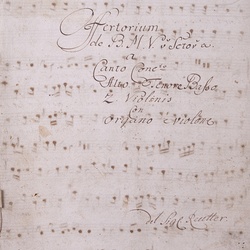 Offertorium
de B. M. V.
a
Canto Conc:to
Alto Tenore Basso
2 Violinis
con
Organo e Violone
Del Sig: Reutter